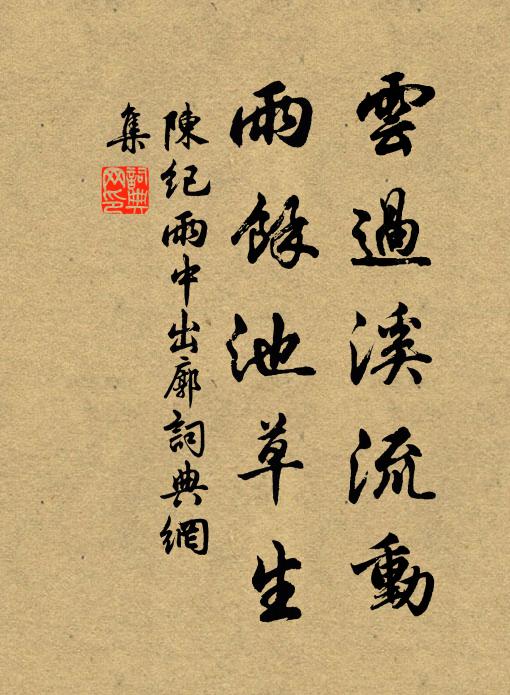 雲過溪流動
雨餘池草生
陳紀雨中出廓詞典網
集
詞典网印